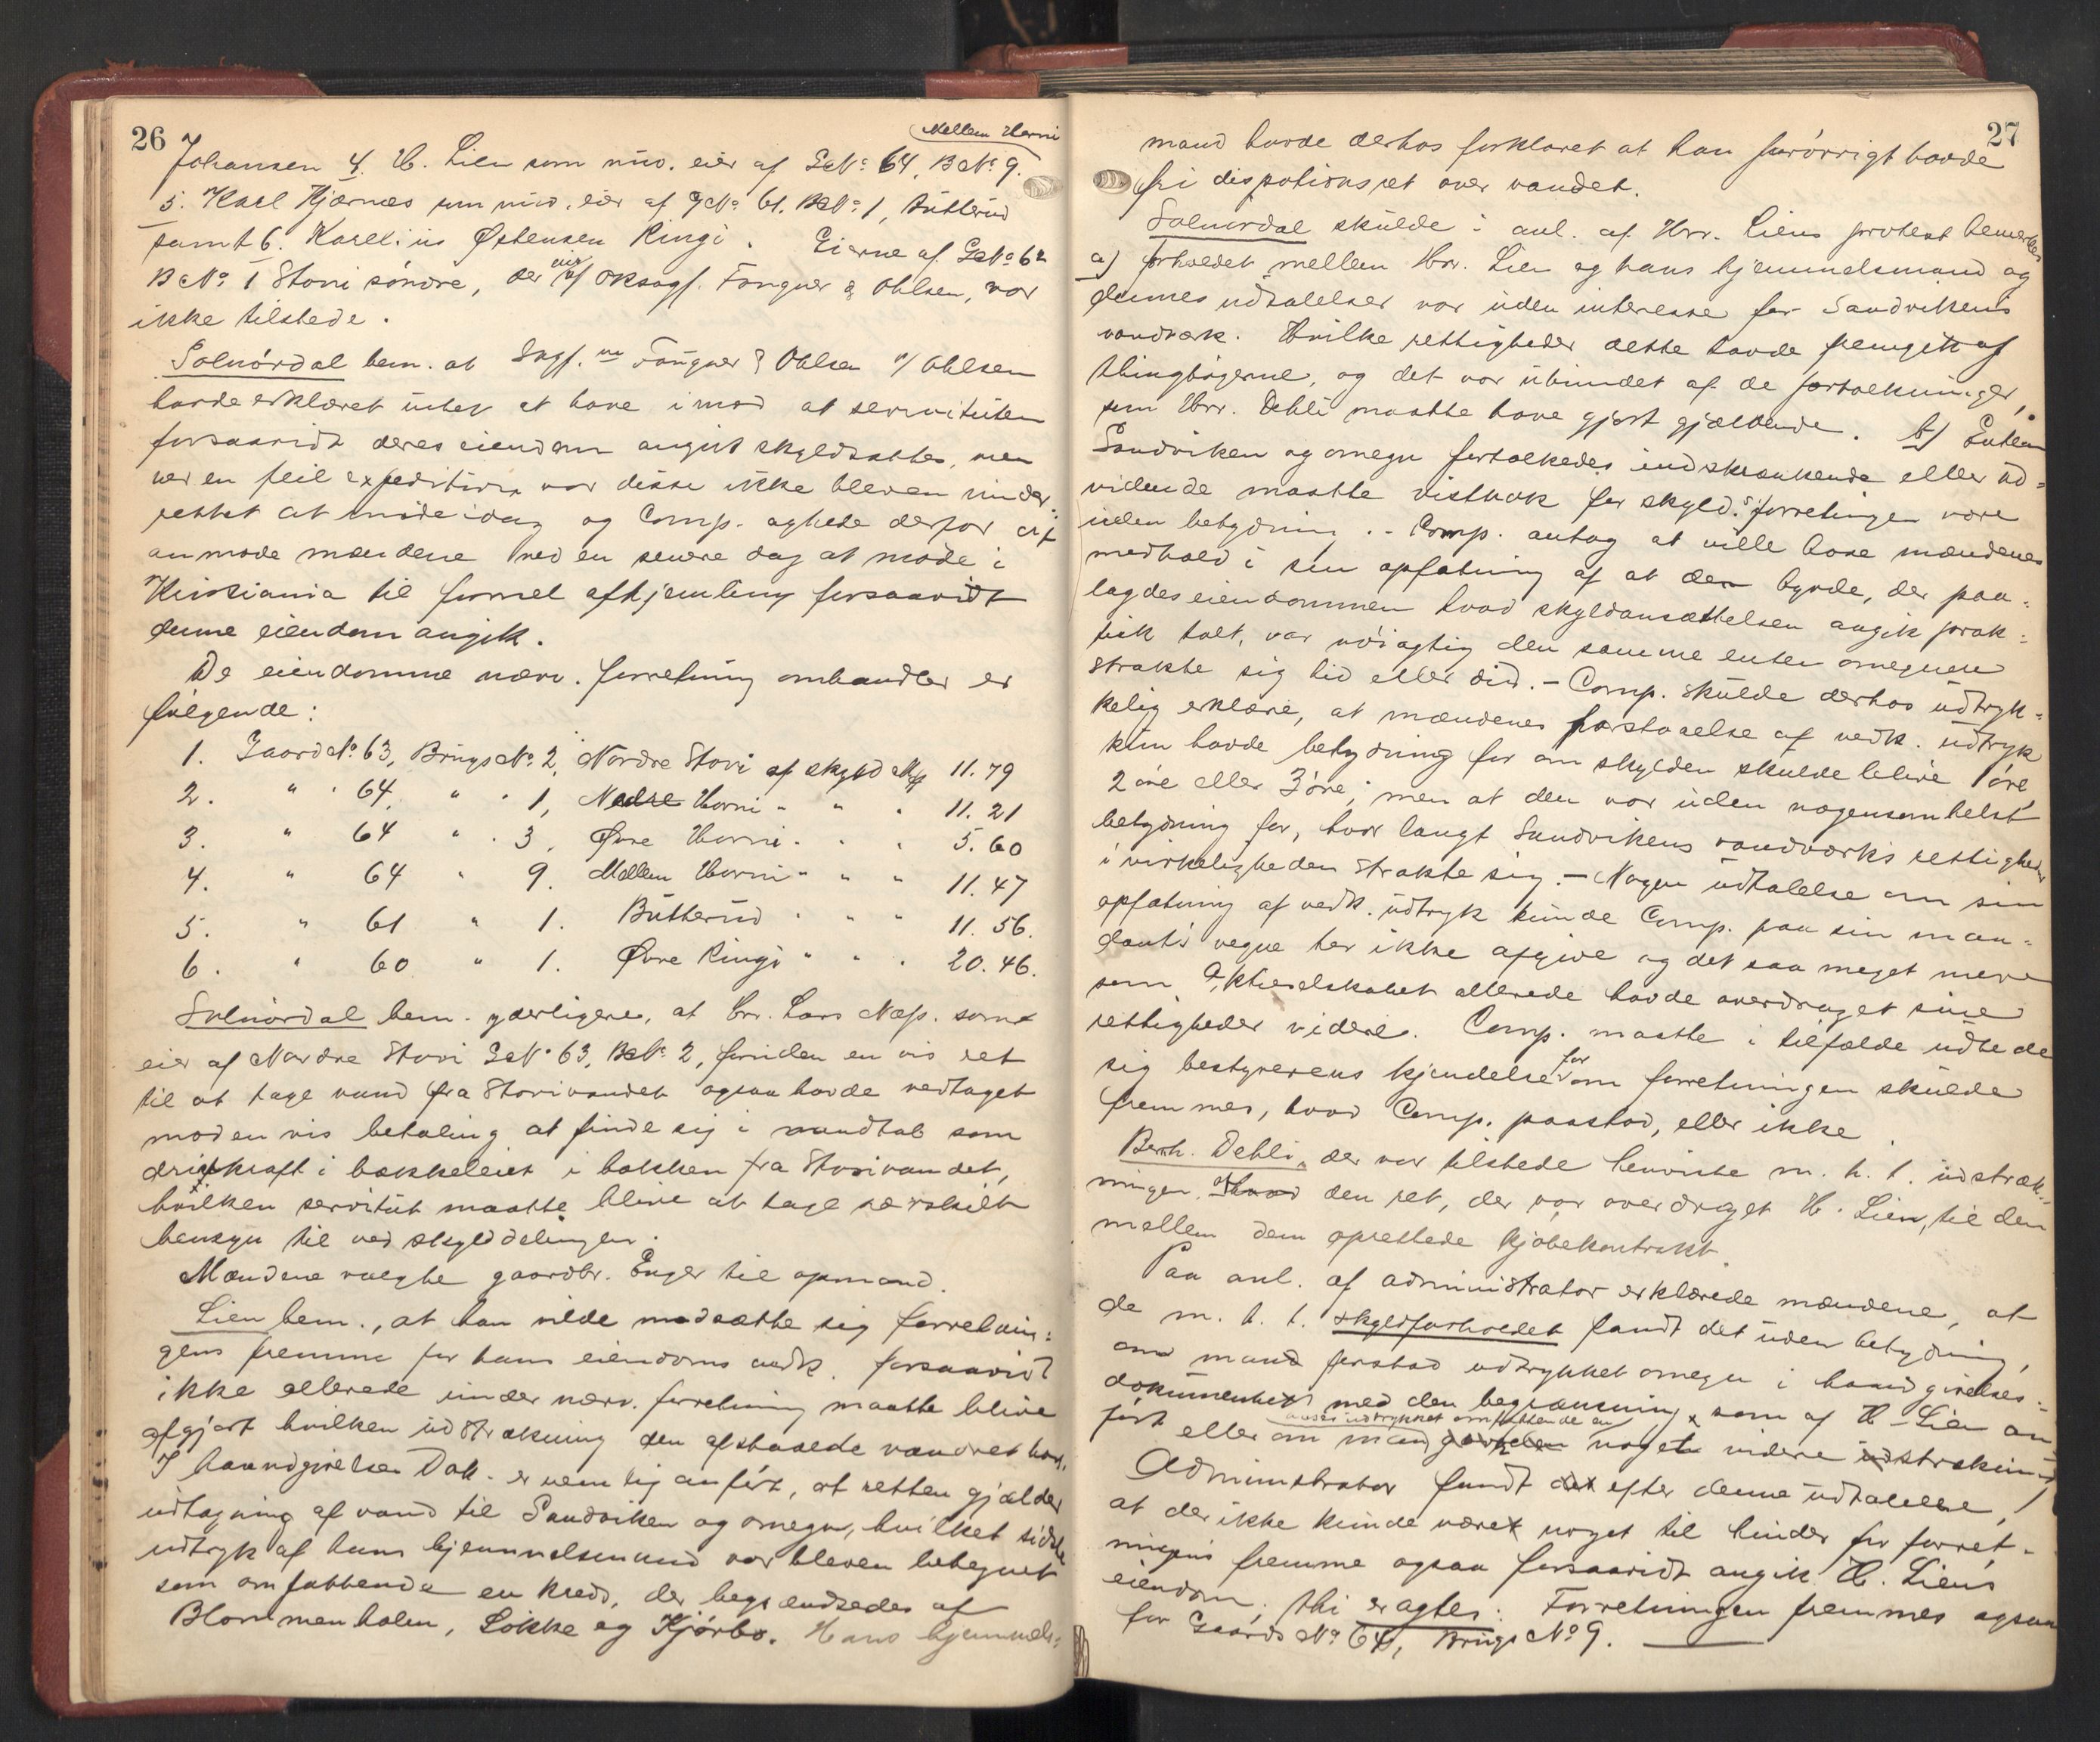 26
Mellem Horni
Johansen 4. H. Lien som nuv. eier af G.No. 64, B.No. 9.
5. Karl Kjærnæs som nuv. eier af G.No. 61. B.No. 1, Butterud
samt 6. Kareliis Østensen Ringi. Eierne af G.No. 62
B.No. 1 Stovi søndre, der eies af Oksagf. Fougner & Ohlsen, var
ikke tilstede.
Solnørdal bem. at Sagf. ne Fougner & Ohlsen v/ Ohlsen
havde erklæret intet at have imod at servituten
forsaavidt deres eiendom angik skyldsattes, men
ved en feil expedition var disse ikke bleven under-
rettet at møde idag og Comp. agtede derfor at
anmode mændene ved en senere dag at møde i
Kristiania til formel afhjemling forsaavidt
denne eiendom angik.
De eiendomme nærv. forretning omhandler er
følgende:
1. Gaards No. 63, Brugs No. 2, Nordre Stovi af skyld Mk 11.79
2. " " 64, " " 1, Nedre Horni " " " 11.21
3. " 64 " " 3, Øvre Horni " " " 5.60
4. " 64 " 9. Mellem Horni " " " 11.47
5. " 61 " 1. Butterud " " " 11.56.
6. " 60 " 1. Øvre Ringi " " " 20.46.
Solnørdal bem. yderligere, at Hr. Lars Næss. som
eier af Nordre Stovi G.No. 63, B.No. 2, foruden en vis ret
til at tage vand fra Stovivandet ogsaa havde vedtaget
mod en vis betaling at finde sig i vandtab som
drivkraft i bækkeleiet i bækken fra Stovivandet,
hvilken servitut maatte blive at tage særskilt
hensyn til ved skylddelingen.
Mændene valgte gaardbr. Enger til opmand.
Lien bem., at han vilde modsætte sig forretnin-
gens fremme for hans eiendoms vedk. forsaavidt
ikke allerede under nærv. forretning maatte blive
afgjort hvilken udstrækning den afstaaede vandret har.
I haandgivelses Dok. er nemlig anført, at retten gjælder
udtagning af vand til Sandviken og omegn, hvilket sidste
udtryk af hans hjemmelsmand var bleven betegnet
som omfattende en kreds, der begrændsedes af
Blommenholm, Løkke og Kjørbo. Hans hjemmels-
27
mand havde derhos forklaret at han forøvrigt havde
fri dispotionsret over vandet.
Solnørdal skulde i anl. af Hrr. Liens protest bemerke
a) forholdet mellem Hrr. Lien og hans hjemmelsmand og
dennes udtalelser var uden interesse for Sandvikens
vandværk. Hvilke rettigheder dette havde fremgik af
thingbøgerne, og det var ubundet af de fortolkninger,
som Hrr. Dehli maatte have gjort gjældende. b) Enten
Sandviken og omegn fortolkedes indskrænkende eller ud-
videnede maatte vistnok for skyld.forretningen være
uden betydning. - Comp. antog at ville have mændenes
medhold i sin opfatning af at den byrde, der paa-
lagdes eiendommen hvad skyldansættelsen angik prak-
tisk talt, var nøiagtig den samme enten omegnen
strakte sig hid eller did. - Comp. skulde derhos udtryk-
kelig erklære, at mændenes forstaaelse af vedk. udtryk
kun havde betydning for om skylden skulde blive 1 øre,
2 øre eller 3 øre; men at den var uden nogensomhelst
betydning for, hvor langt Sandvikens vandværks rettigheder
i virkeligheden strakte sig. - Nogen udtalelse om sin
opfatning af vedk. udtryk kunde Comp. paa sin man-
dants vegne her ikke afgive og det saa meget mere
som Aktieselskabet allerede havde overdraget sine
rettigheder videre. Comp. maatte i tilfælde udbede
sig bestyrerens kjendelse for om forretningen skulde
fremmes, hvad Comp. paastod, eller ikke.
Bernh. Dehli, der var tilstede henviste m. h. t. udstræk-
ningen af den ret, der var overdraget H. Lien, til den
mellem dem oprettede kjøbekontrakt.
Paa anl. af administrator erklærede mændene, at
de m. h. t. skyldforholdet fandt det uden betydning,
om man forstod udtrykket omegn i haandgivelses-
dokumentet med den begrænsning, som af H. Lien an-
anses udtrykket omfattende en
ført eller om man noget videre udstrækning
Administrator fandt efter denne udtalelse,
at der ikke kunde være noget til hinder for forret-
ningens fremme ogsaa forsaavidt angik H. Liens
eiendom, thi eragtes: Forretningen fremmes ogsaa
for Gaards No. 64, Brugs No. 9.